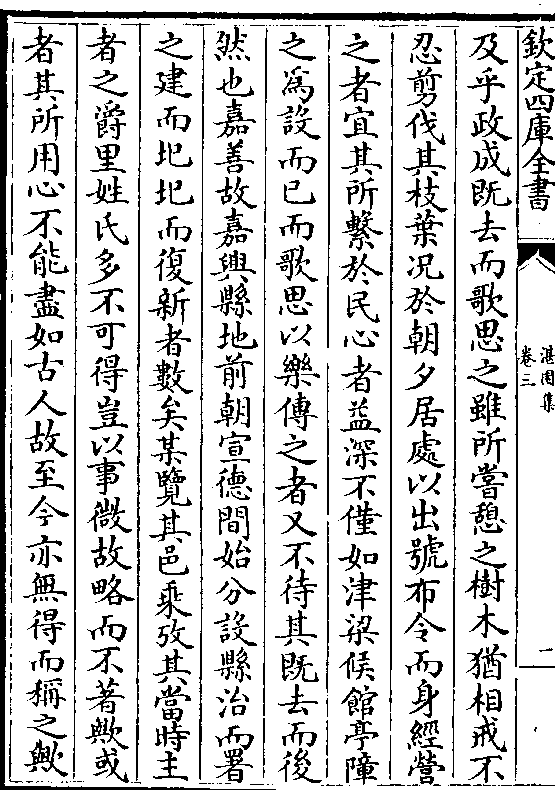 欽定四庫全書
湛園集
卷三
一
及乎政成既去而歌思之雖所嘗憩之樹木猶相戒不
忍剪伐其枝葉况於朝夕居處以出號布令而身經營
之者宜其所繫於民心者益深不僅如津梁候館亭障
之為設而已而歌思以樂傳之者又不待其既去而後
然也嘉善故嘉興縣地前朝宣德間始分設縣治而署
之建而圯圯而復新者數矣某覽其邑乘攷其當時主
者之爵里姓氏多不可得豈以事微故略而不著歟或
者其所用心不能盡如古人故至今亦無得而稱之歟